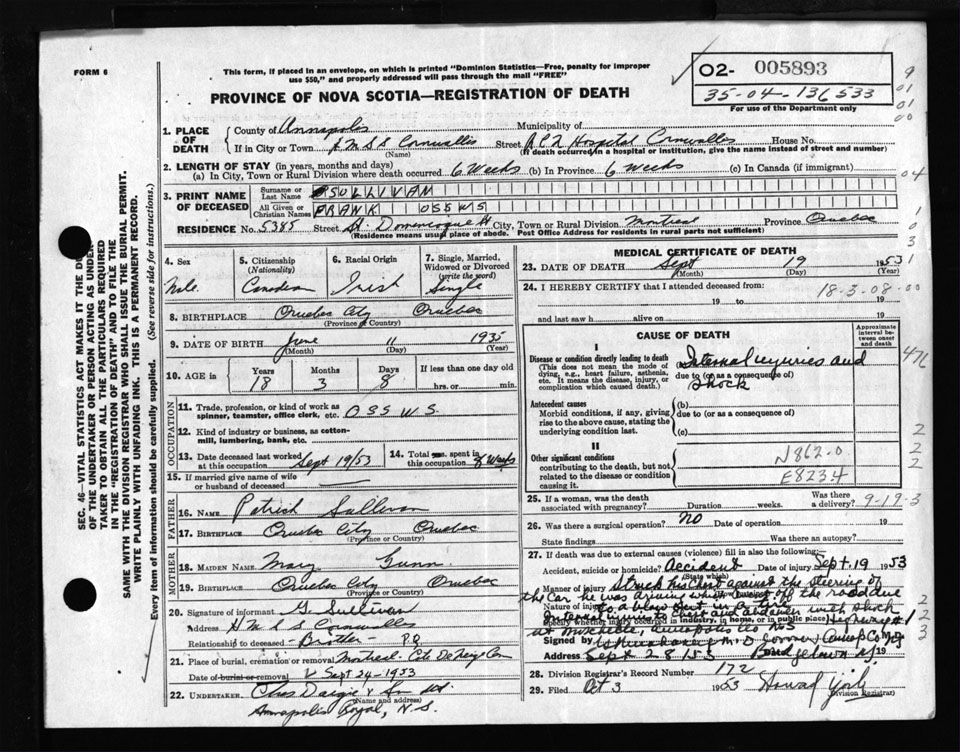 FORM 6
This form, if placed in an envelope, on which is printed "Dominion Statistics—Free, penalty for improper
use $50," and properly addressed will pass through the mail "FREE"
PROVINCE OF NOVA SCOTIA—REGISTRATION OF DEATH
O2- 005893
35-04-136533
For use of the Department only
1. PLACE OF DEATH
County of Annapolis Municipality of
If in City or Town H.M.S.S. Cornwallis Street R C N Hospital Cornwallis House No.
(Name) (If death occurred in a hospital or institution, give the name instead of street and number)
2. LENGTH OF STAY (in years, months and days)
(a) In City, Town or Rural Division where death occurred 6 Weeks (b) In Province 6 Weeks (c) In Canada (if immigrant)
3. PRINT NAME OF DECEASED
Surname or Last Name SULLIVAN
All Given or Christian Names FRANK OSSWS
RESIDENCE No. 5385 Street St. Dominique City, Town or Rural Division Montreal Province Quebec
(Residence means usual place of abode. Post Office Address for residents in rural parts not sufficient)
4. Sex
Male
5. Citizenship (Nationality)
Canadian
6. Racial Origin
Irish
7. Single, Married, Widowed or Divorced (write the word)
Single
8. BIRTHPLACE Quebec City Quebec
(Province or Country)
9. DATE OF BIRTH June 11 1935
(Month) (Day) (Year)
10. AGE in
Years 18
Months 3
Days 8
If less than one day old
hrs. or min.
OCCUPATION
11. Trade, profession, or kind of work as spinner, teamster, office clerk, etc. O S S W S.
12. Kind of industry or business, as cotton-mill, lumbering, bank, etc.
13. Date deceased last worked at this occupation Sept 19/53
14. Total yrs. spent in this occupation Weeks
15. If married give name of wife or husband of deceased
FATHER
16. NAME Patrick Sullivan
17. BIRTHPLACE Quebec City Quebec
(Province or Country)
MOTHER
18. MAIDEN NAME Mary Gunn
19. BIRTHPLACE Quebec City Quebec
(Province or Country)
20. Signature of informant G. Sullivan
Address H M S S Cornwallis
Relationship to deceased Brother P.Q
21. Place of burial, cremation or removal Montreal Cote De Neige Cem
Date of burial or removal Sept 24-1953
22. UNDERTAKER Chas Dargie & Son
(Name and address)
Annapolis Royal, N.S.
MEDICAL CERTIFICATE OF DEATH
23. DATE OF DEATH Sept 19 1953
(Month) (Day) (Year)
24. I HEREBY CERTIFY that I attended deceased from:
18-3-08-00
19 to 19
and last saw h alive on 19
CAUSE OF DEATH
Approximate interval between onset and death
I
Disease or condition directly leading to death
(This does not mean the mode of dying, e.g., heart failure, asthenia, etc. It means the disease, injury, or complication which caused death.)
Internal injuries and
due to (or as a consequence of)
Shock
Antecedent causes
Morbid conditions, if any, giving rise to the above cause, stating the underlying condition last.
(b)
due to (or as a consequence of)
(c)
II
Other significant conditions
contributing to the death, but not related to the disease or condition causing it.
N862.0
E8234
25. If a woman, was the death associated with pregnancy? Duration weeks. Was there a delivery? 9-19-3
26. Was there a surgical operation? NO Date of operation 19
State findings Was there an autopsy?
27. If death was due to external causes (violence) fill in also the following:
Accident, suicide or homicide? Accident Date of injury Sept. 19 1953
(State which)
Manner of injury Struck his chest against the steering of
the Car he was driving which went off the road due
Nature of injury to a blow out in a tire
Injury to Chest and abdomen with shock
Specify whether injury occurred in industry, in home, or in public place Highway #1
at Annapolis Co N.S
Signed by
Address Sept 28/53 Bridgetown 19
28. Division Registrar's Record Number 172
29. Filed Oct 3 1953 Howard York
(Division Registrar)
SEC. 46—VITAL STATISTICS ACT MAKES IT THE DUTY
OF THE UNDERTAKER OR PERSON ACTING AS UNDER-
TAKER TO OBTAIN ALL THE PARTICULARS REQUIRED
IN THE "REGISTRATION OF DEATH" AND TO FILE THE
SAME WITH THE DIVISION REGISTRAR WHO SHALL ISSUE THE BURIAL PERMIT.
WRITE PLAINLY WITH UNFADING INK. THIS IS A PERMANENT RECORD.
Every item of information should be carefully supplied. (See reverse side for instructions.)